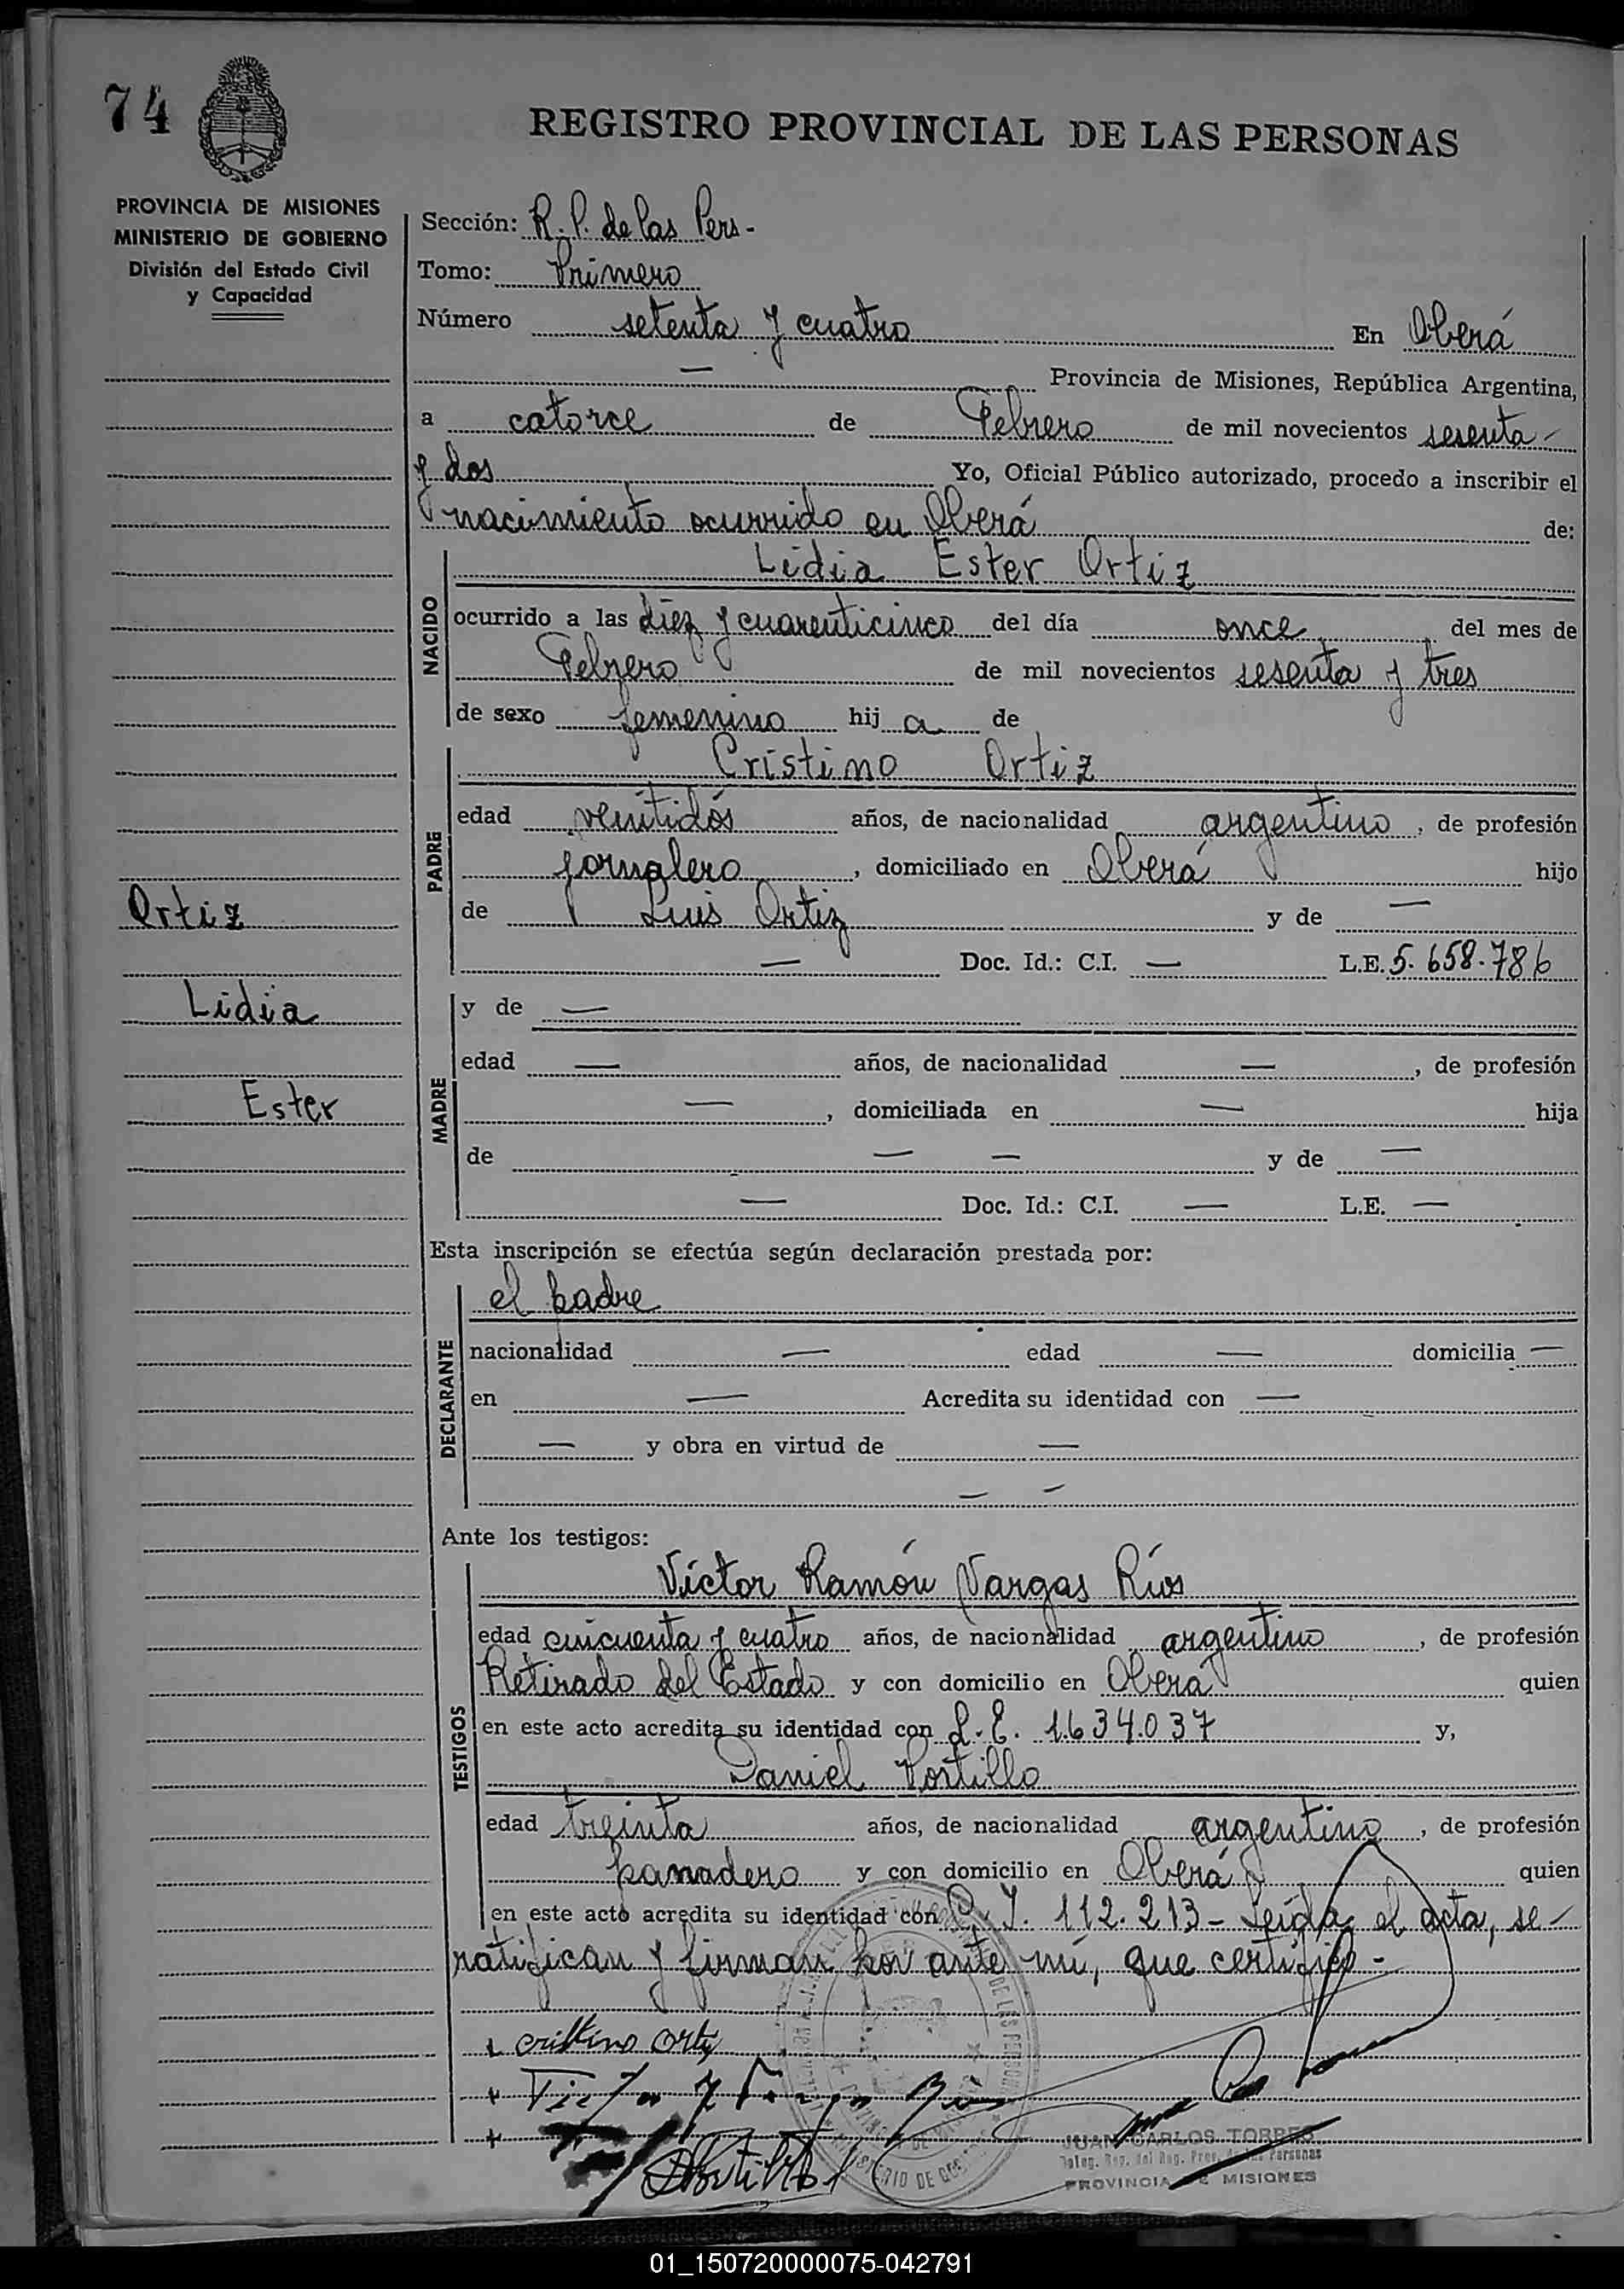 74
REGISTRO PROVINCIAL DE LAS PERSONAS
PROVINCIA DE MISIONES
MINISTERIO DE GOBIERNO
División del Estado Civil
y Capacidad
Sección: R. P. de las Pers-
Tomo: Primero
Número setenta y cuatro En Oberá
— Provincia de Misiones, República Argentina,
a catorce de Febrero de mil novecientos sesenta-
y dos Yo, Oficial Público autorizado, procedo a inscribir el
nacimiento ocurrido en Oberá de:
NACIDO
Lidia Ester Ortiz
ocurrido a las diez y cuarenticinco del día once del mes de
Febrero de mil novecientos sesenta y tres
de sexo femenino hij a de
PADRE
Cristino Ortiz
edad veintidós años, de nacionalidad argentino, de profesión
jornalero, domiciliado en Oberá hijo
de Luis Ortiz y de —
— Doc. Id.: C.I. — L.E. 5.658.786
Ortiz
Lidia
Ester
MADRE
y de —
edad — años, de nacionalidad —, de profesión
—, domiciliada en — hija
de — — y de —
— Doc. Id.: C.I. — L.E. —
Esta inscripción se efectúa según declaración prestada por:
DECLARANTE
el padre
nacionalidad — edad — domicilia —
en — Acredita su identidad con —
— y obra en virtud de —
— —
Ante los testigos:
TESTIGOS
Víctor Ramón Vargas Ríos
edad cincuenta y cuatro años, de nacionalidad argentino, de profesión
Retirado del Estado y con domicilio en Oberá quien
en este acto acredita su identidad con L.E. 1.634.037 y,
Daniel Portillo
edad treinta años, de nacionalidad argentino, de profesión
panadero y con domicilio en Oberá quien
en este acto acredita su identidad con C. I. 112.213- Leída el acta, se-
ratifican y firman por ante mí, que certifico-
+ cristino Ortiz
+
+ Portillo
JUAN CARLOS TORRES
PROVINCIA DE MISIONES
01_150720000075-042791